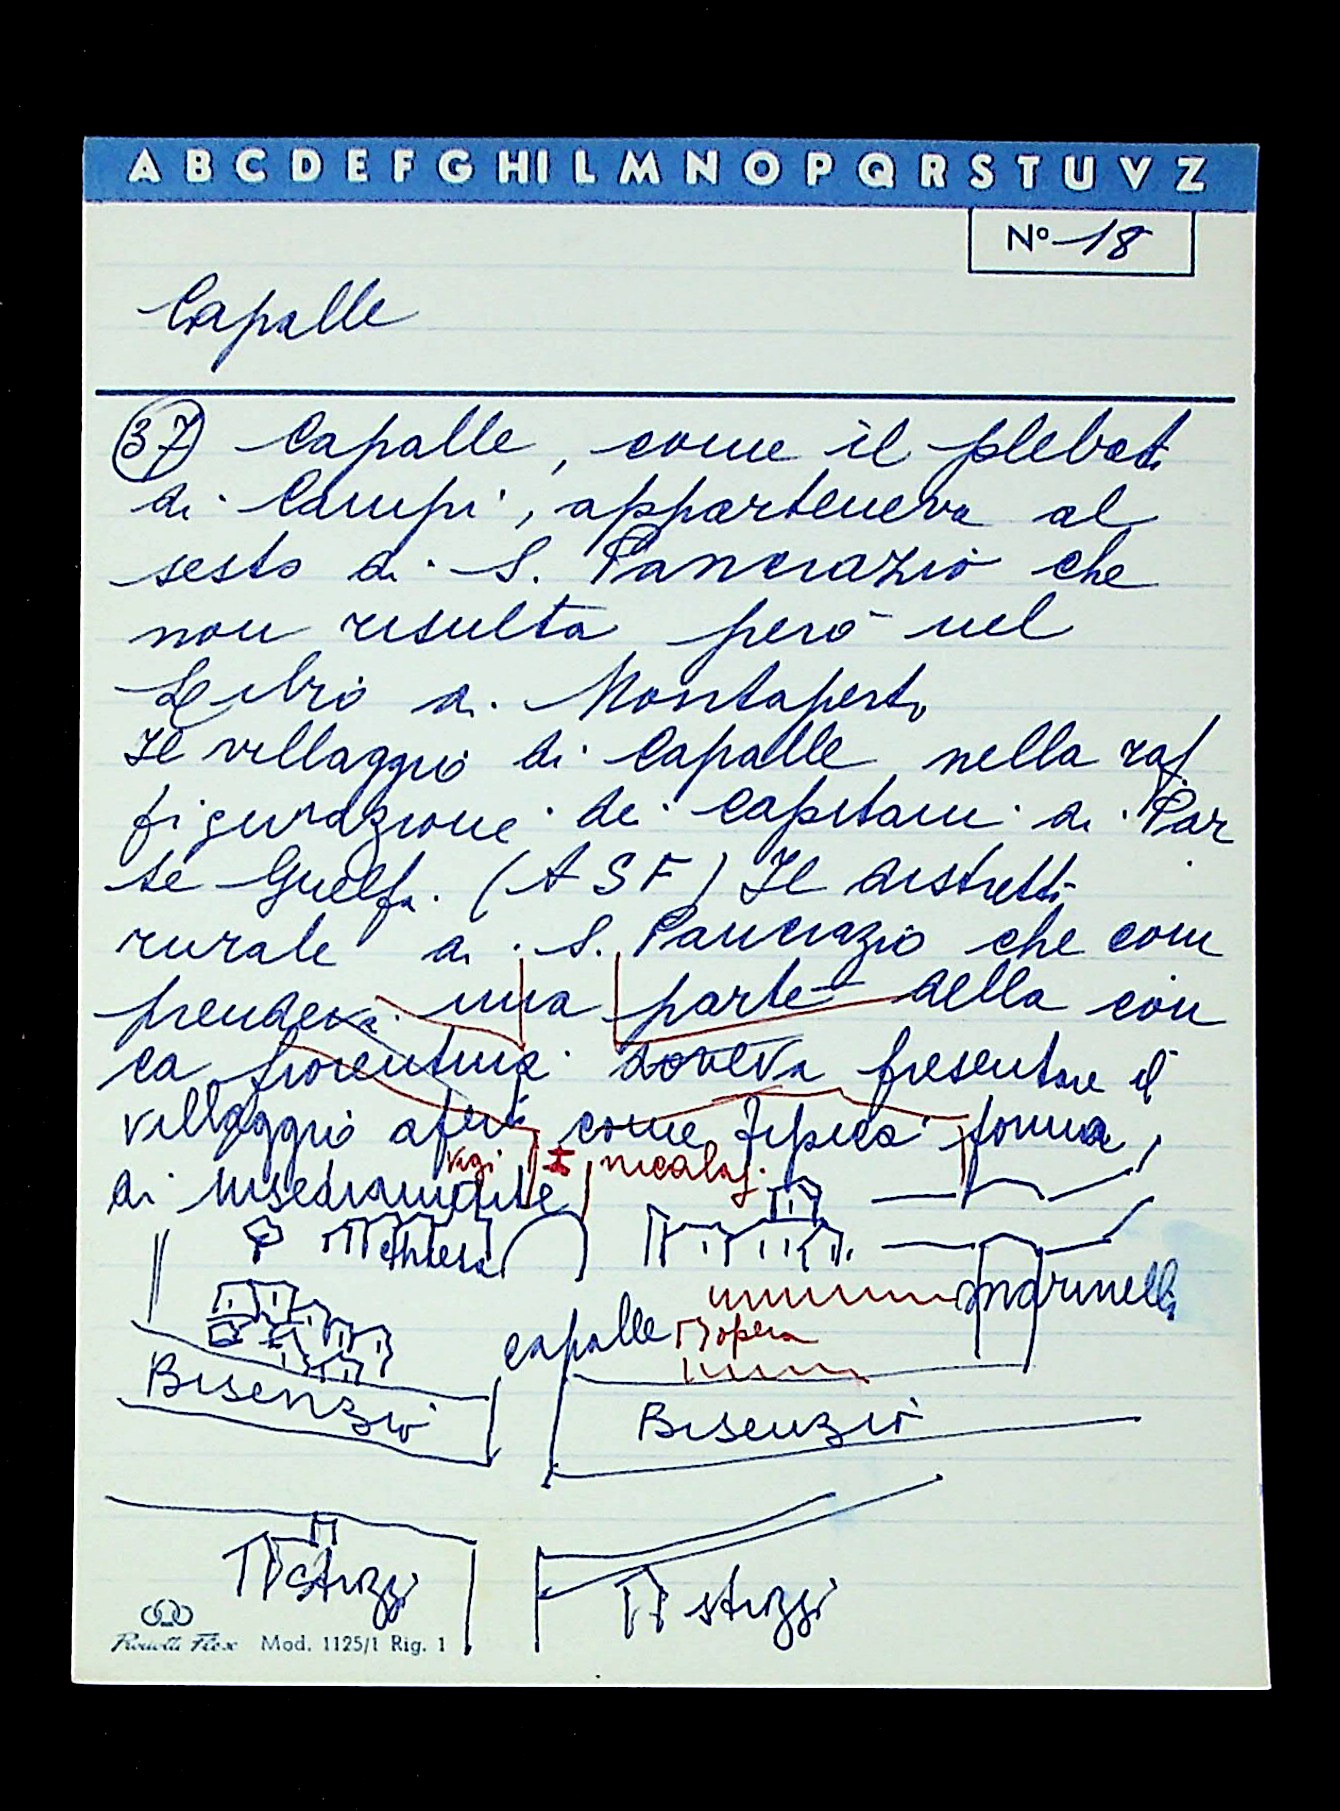 A B C D E F G H I L M N O P Q R S T U V Z
Nº 18
Capalle
37 Capalle, come il plebat.
di Campi, apparteneva al
sesto di S. Pancrazio che
non risulta però nel
Libro di Montaperti
Il villaggio di Capalle nella raf
figurazione dei Capitani di Par
te Guelfa. (ASF) Il distretto
rurale di S. Pancrazio che com
prendeva una parte della con
ca fiorentina doveva presentare il
villaggio aperto come tipica forma
di insediamento
nicalaj
chiesa
marinelli
capalle
opera
Bisenzio
Bisenzio
strozzi
strozzi
Flex Mod. 1125/1 Rig. 1